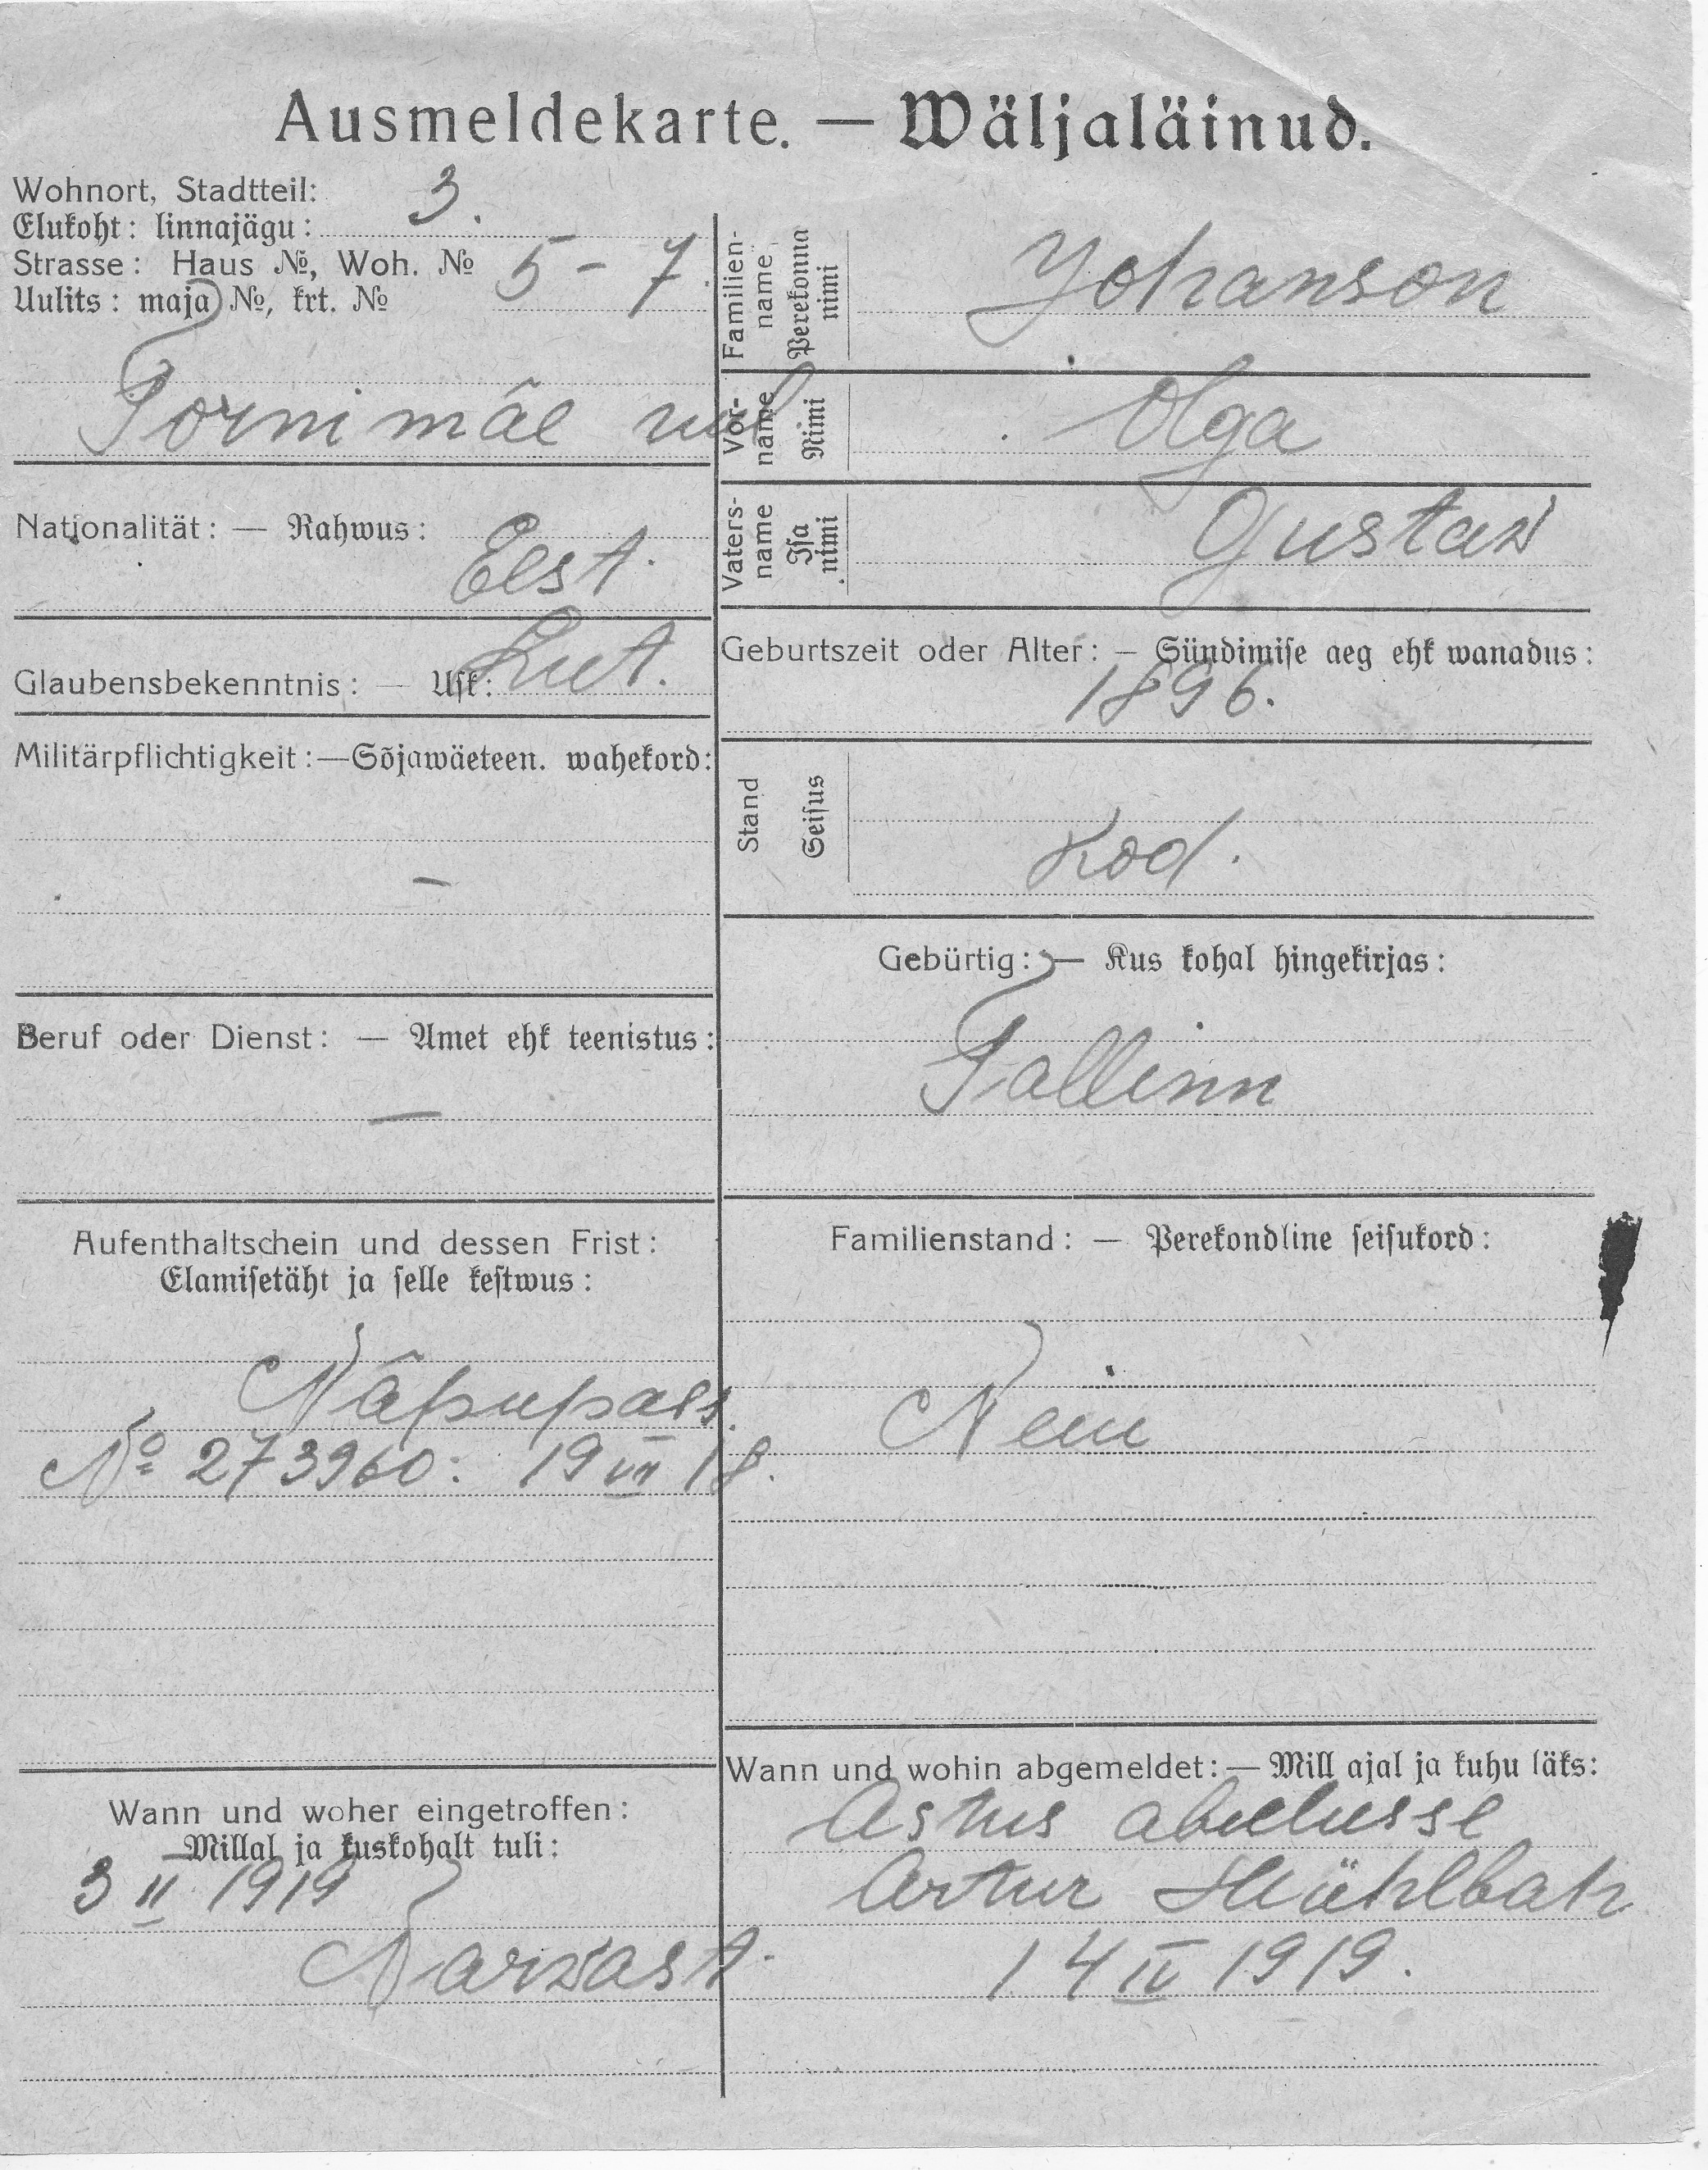 Ausmeldekarte. — Wäljaläinud.
Wohnort, Stadtteil:
Elukoht: linnajägu: 3.
Strasse: Haus №, Woh. № 5 - 7.
Uulits: maja №, krt. №
Tornimäe uul
Nationalität: — Rahwus: Eest.
Glaubensbekenntnis: — Usk: Lut.
Militärpflichtigkeit:—Sõjawäeteen. wahekord:
—
Beruf oder Dienst: — Amet ehk teenistus:
—
Aufenthaltschein und dessen Frist:
Elamisetäht ja selle kestwus:
Näpupass.
№ 273960: 19 VII 18.
Wann und woher eingetroffen:
Millal ja kuskohalt tuli:
3 II 1919
Narwast.
Familien-
name
Perekonna
nimi
Johanson
Vor-
name
Nimi
Olga
Vaters-
name
Isa
nimi
Gustaw
Geburtszeit oder Alter: — Sündimise aeg ehk wanadus:
1896.
Stand
Seisus
Kod.
Gebürtig: — Kus kohal hingekirjas:
Tallinn
Familienstand: — Perekondline seisukord:
Neiu
Wann und wohin abgemeldet: — Mill ajal ja kuhu läks:
Astus abielusse
Artur Mühlbah
14 IV 1919.